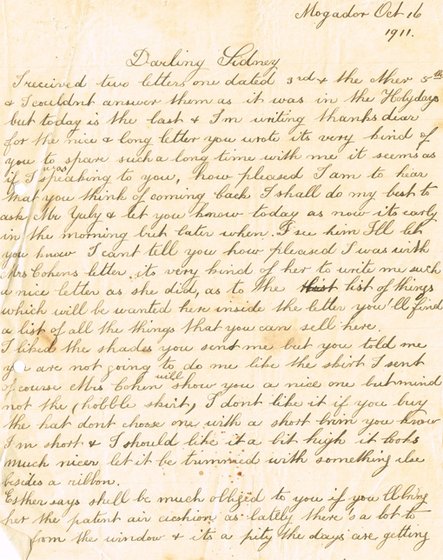 Mogador Oct 16
1911.
Darling Sidney
I received two letters one dated 3rd & the other 5th
& I couldnt answer them as it was in the Holydays
but today is the last & I'm writing thanks dear
for the nice & long letter you wrote its very kind of
you to spare such a long time with me it seems as
if I was speaking to you, how pleased I am to hear
that you think of coming back I shall do my best to
ask Mr & let you know today as now its early
in the morning but later when I see him I'll let
you know I cant tell you how pleased I was with
Mrs Cohens letter, its very kind of her to write me such
a nice letter as she did, as to the list of things
which will be wanted here inside the letter you'll find
a list of all the things that you can sell here.
I liked the shades you send me but you told me
you are not going to do me like the skirt I sent
of course Mrs Cohen will show you a nice one but mind
not the (hobble skirt) I dont like it if you buy
the hat dont chose one with a short brim you know
I'm short & I should like it a bit high it looks
much nicer let it be trimmed with something else
besides a ribbon.
Esther says shell be much obliged to you if you'll bring
her the patent air cushion as lately there's a lot to
from the window & its a pity the days are getting